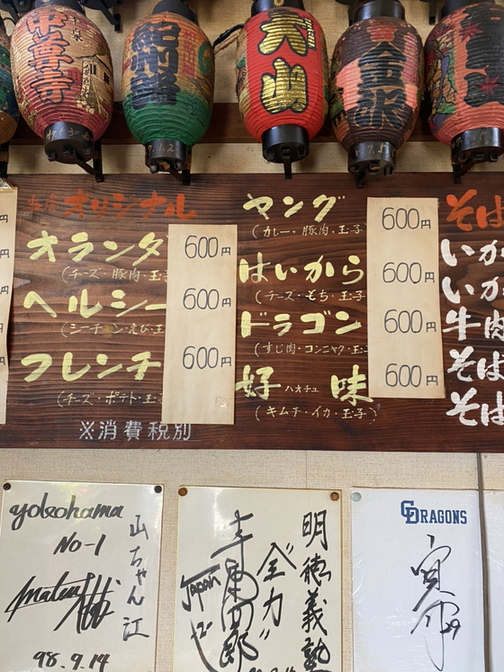 中尊寺
大山
金沢
オリジナル
オランダ
(チーズ・豚肉・玉
600円
ヘルシー
600円
フレンチ
(チーズ・ポテト・玉
600円
※消費税別
ヤング
(カレー・豚肉・玉子
600円
はいから
(チーズ・もち・玉子
600円
ドラゴン
(すじ肉・コンニャク・玉
600円
好味
ハオチュ
(キムチ・イカ・玉子)
600円
そば
いか
いか
牛肉
そば
そば
yokohama
No-1
山ちゃん江
98.9.14
明徳義塾
"全力"
Japan
DRAGONS